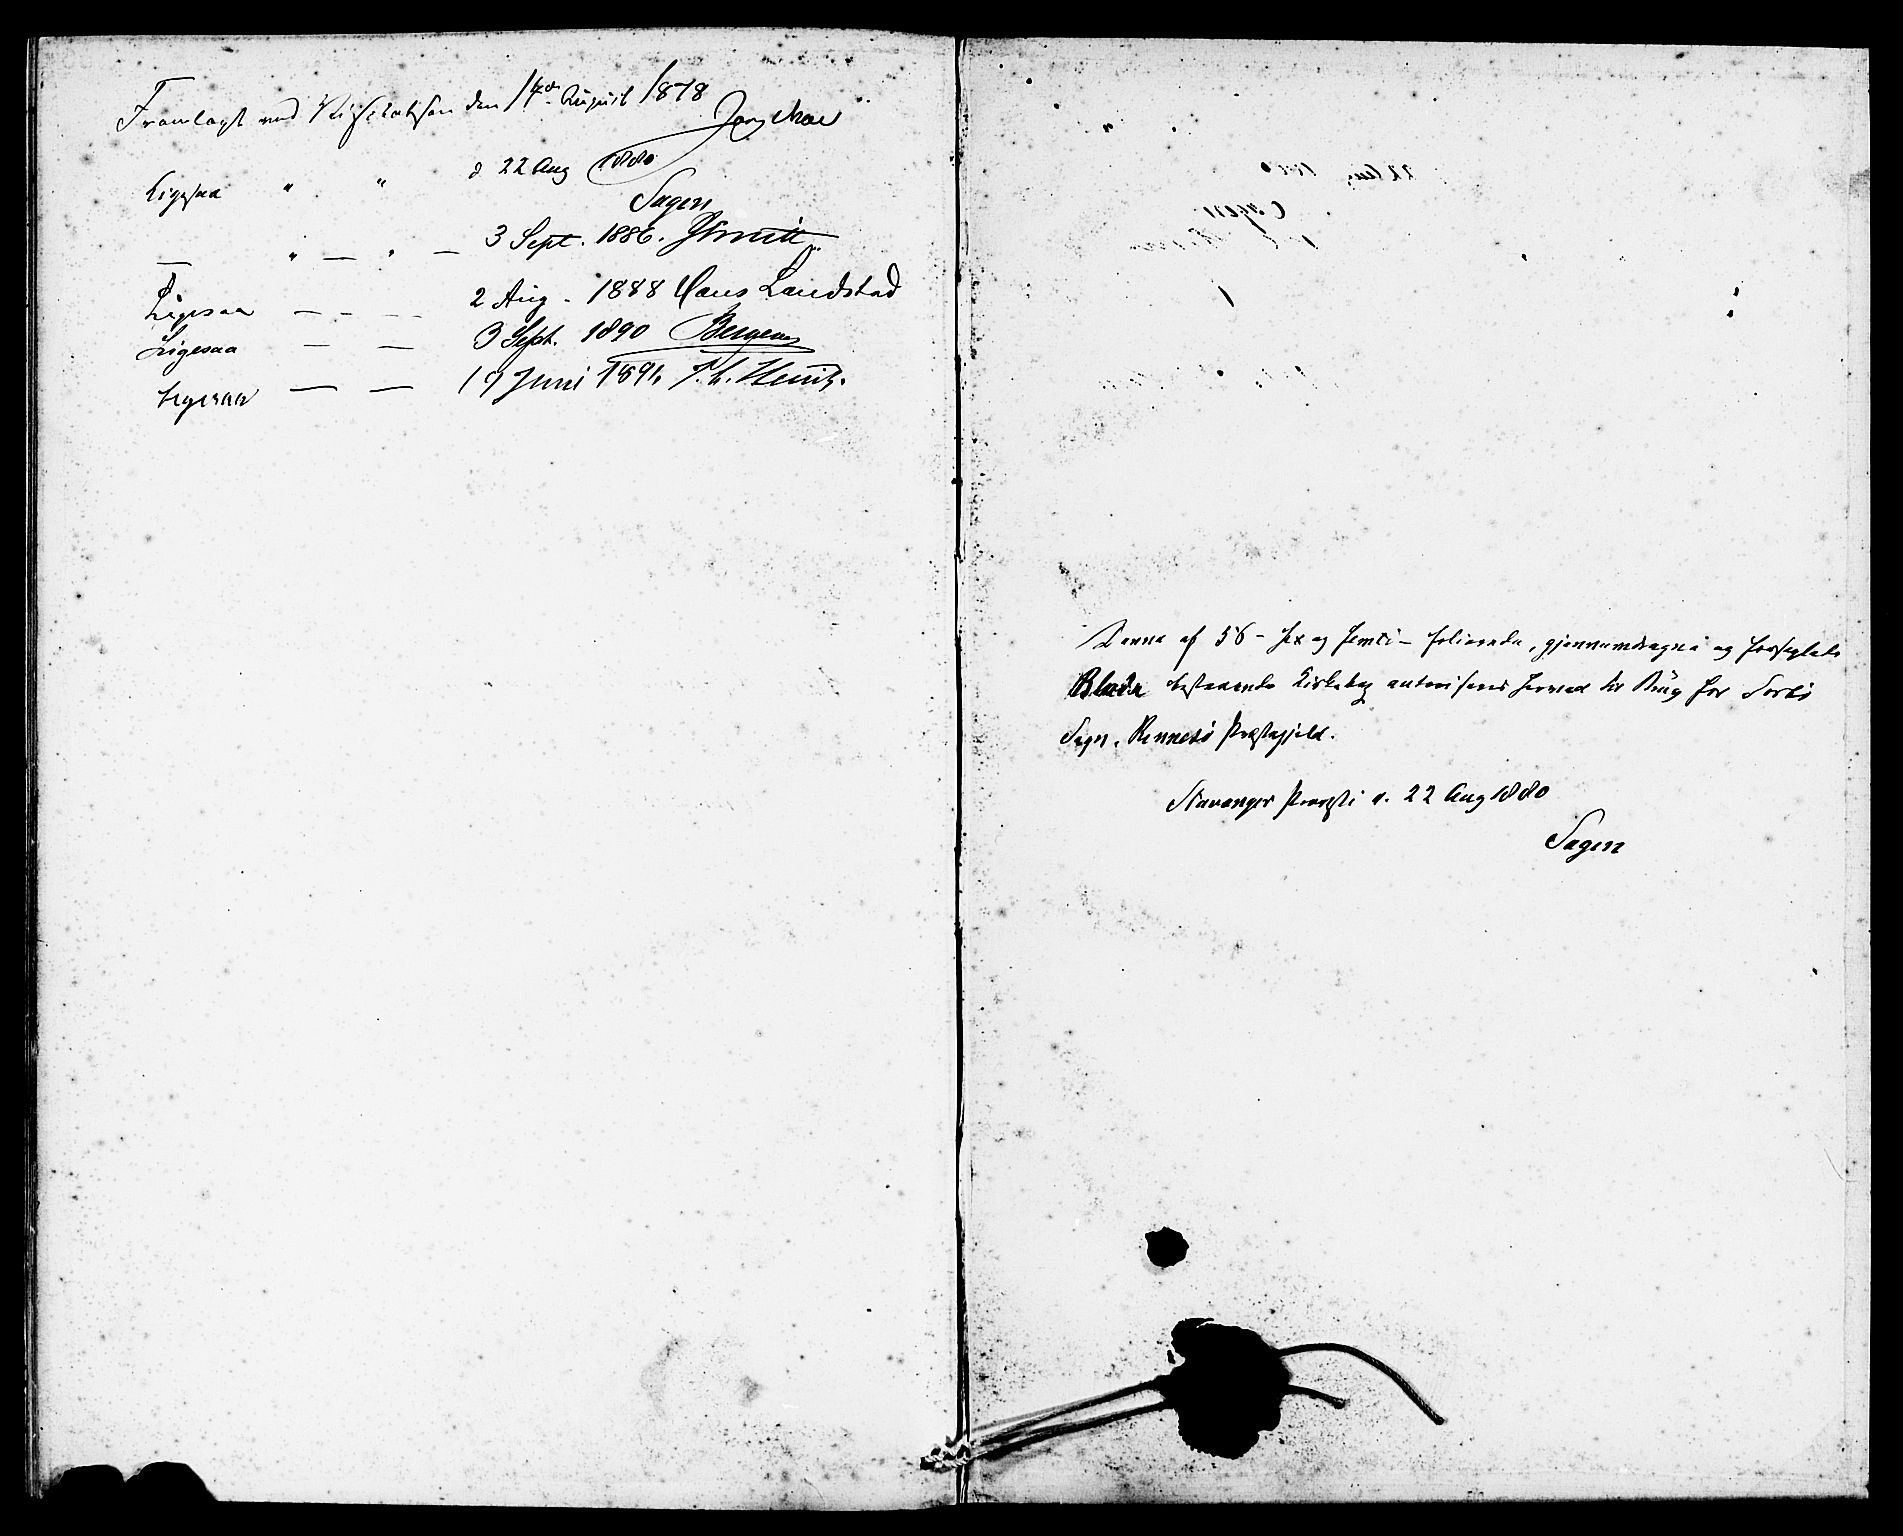 Fremlagt ved Visitatsen den 14de August 1878
Jørg Moe
Ligesaa " " d 22 Aug 1880
Sagen
— " — " — 3 Sept. 1886. JSmitt
Ligesaa — — — 2 Aug. 1888 Hans Landstad
Ligesaa — — 3 Sept. 1890 Bergesen
Ligesaa — — 19 Juni 1891
Denne af 56 - sex og femti - folierede, gjennemdragne og forseglede
Blade bestaaende Kirkebog autoriseres herved til Brug for
Sogn, Rennesö Præstegjeld.
Stavanger Provsti d. 22 Aug 1880
Sagen